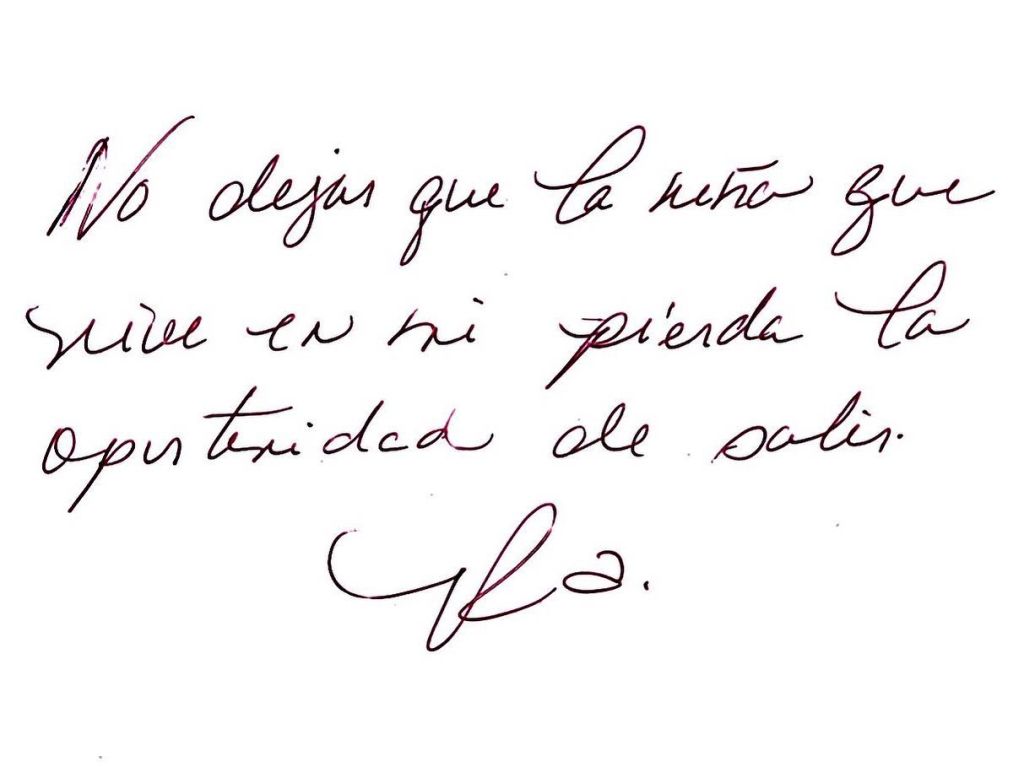 No dejar que la niña que
vive en mi pierda la
oportunidad de salir.